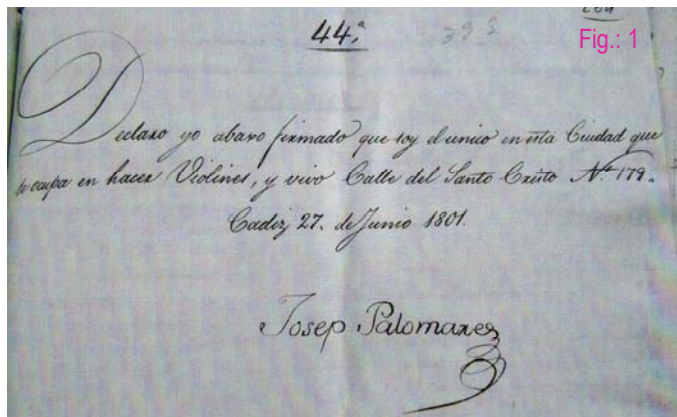 44.ª
Fig.: 1
Declaro yo abaxo firmado que soy el unico en esta Ciudad que
se ocupa en hacer Violines, y vivo Calle del Santo Cristo Nº. 179.
Cadiz 27. de Junio 1801.
Josep Palomares